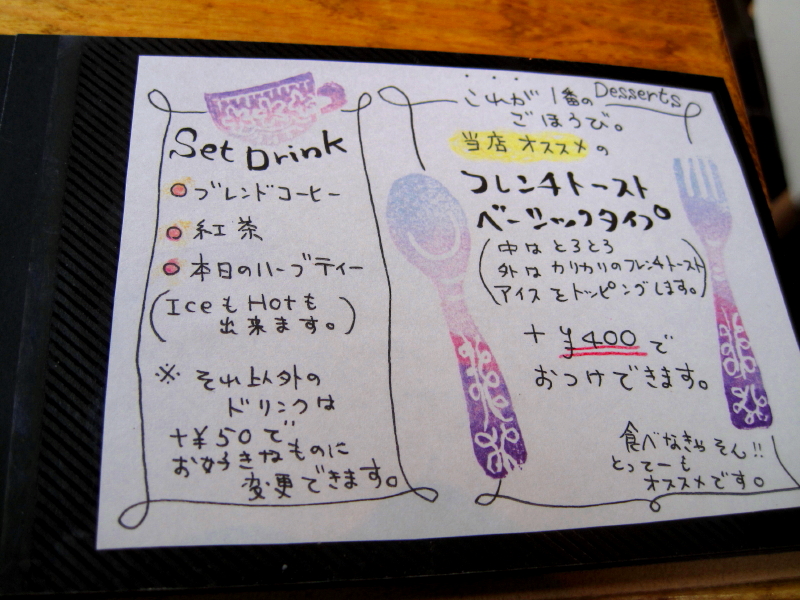 Set Drink
ブレンドコーヒー
紅茶
本日のハーブティー
(Iceも Hotも
出来ます。)
※ それ以外の
ドリンクは
+¥50で
お好きなものに
変更できます。
Desserts
これが 1番の
ごほうび。
当店オススメの
フレンチトースト
ベーシックタイプ
(中はとろとろ
外はカリカリのフレンチトースト
アイスをトッピングします。)
+ ¥400で
おつけできます。
食べなきゃそん!!
とってーも
オススメです。